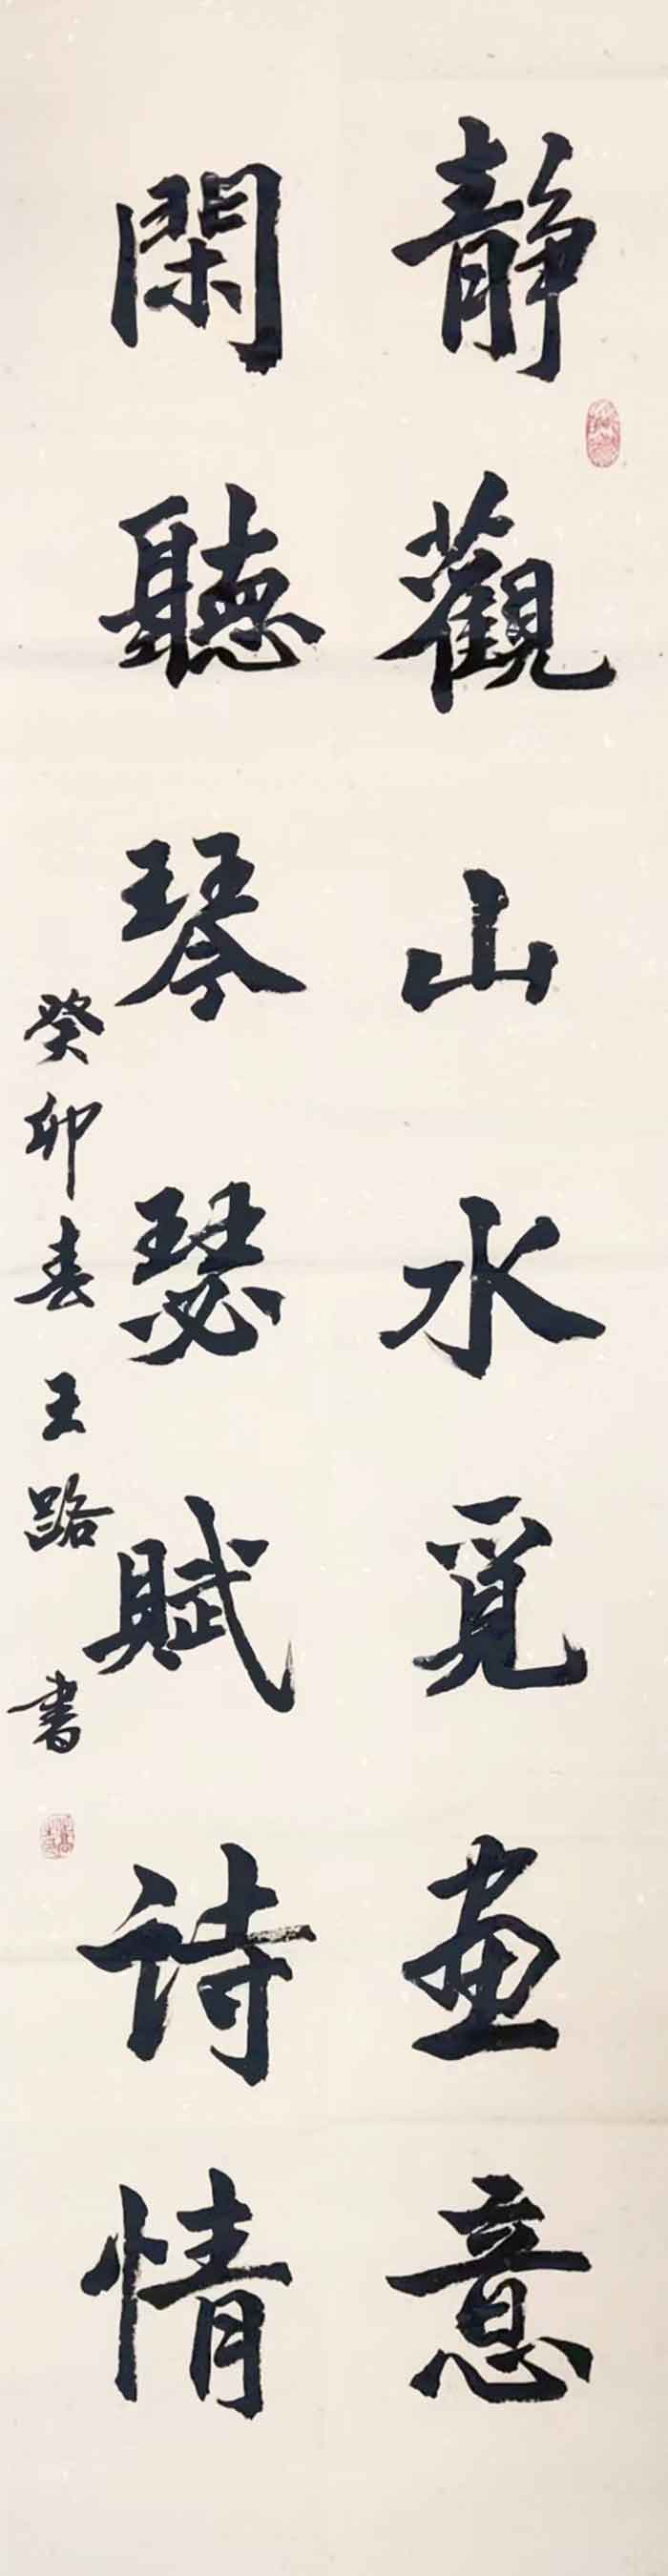 静觀山水覓畫意
閑聽琴瑟賦詩情
癸卯春王路書